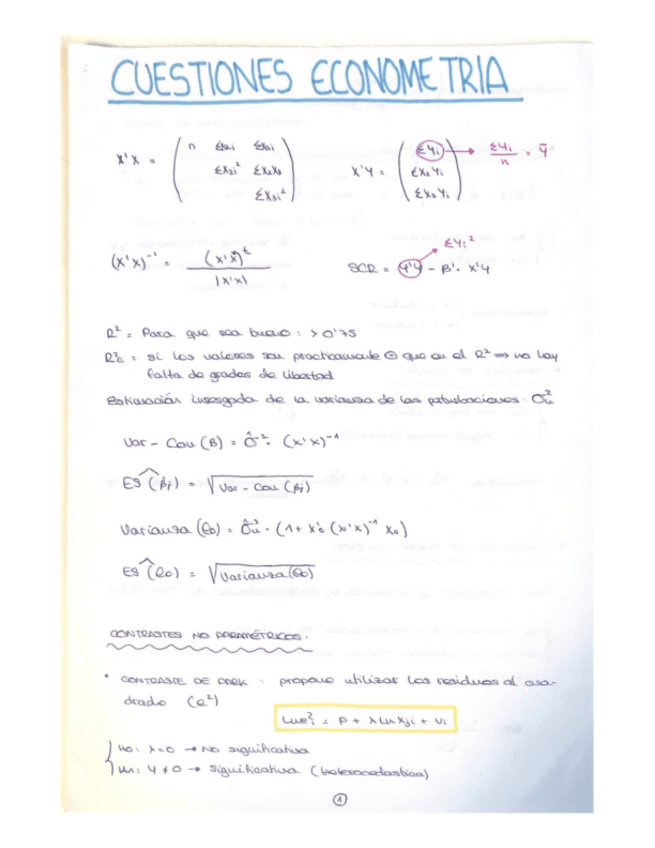 CUESTIONES ECONOMETRIA
X'X = ( n Σx2i Σx3i
Σx2i² Σx2x3
Σx3i² )
X'Y = ( ΣYi → ΣYi/n = Ȳ
Σx2Yi
Σx3Yi )
(X'X)⁻¹ = (X'X)ᵗ / |X'X|
SCR = Y'Y - β'· X'Y
ΣYi²
R² = Para que sea bueno : > 0'75
si los valores son practicamente = que en el R² ⇒ no hay
falta de grados de libertad
Estimación insesgada de la varianza de las perturbaciones: σ̂u²
Var - Cou (β) = σ̂²· (x'x)⁻¹
ES (βj) = √Var - Cou (βj)
Varianza (e0) = σ̂u² · (1 + x'0 (x'x)⁻¹ x0)
ES (e0) = √Varianza (e0)
CONTRASTES NO PARAMÉTRICOS.
* CONTRASTE DE PARK : propone utilizar los residuos al cua-
drado (e²)
Lnei² = P + λ Ln Xji + Vi
H0: λ=0 → No significativa
H1: Y ≠ 0 → Significativa (Heterocedastica)
1